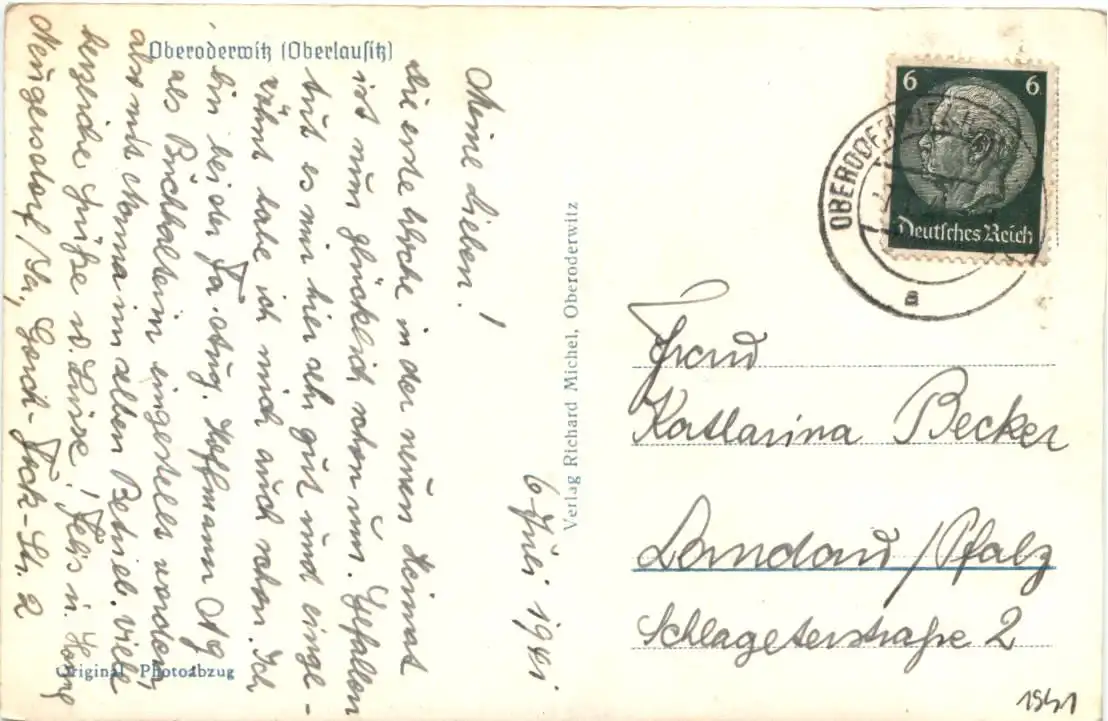 Oberoderwitz (Oberlausitz)
6. Juli 1941
Meine Lieben!
die erste Woche in der neuen Heimat
ist nun glücklich schon um. Gefallen
tut es mir hier sehr gut und einge-
wöhnt habe ich mich auch schon. Ich
bin bei der Fa. Aug. Hoffmann AG
als Buchhalterin eingestellt worden,
also mit Mama im selben Betrieb. Viele
herzliche Grüße u. Küsse!
Neugersdorf/Sa, Gorch-Fock-Str. 2
Verlag Richard Michel, Oberoderwitz
Original Photoabzug
6 6
Deutsches Reich
OBERODERWITZ
a
Frau
Katharina Becker
Landau/Pfalz
Schlageterstraße 2
1941